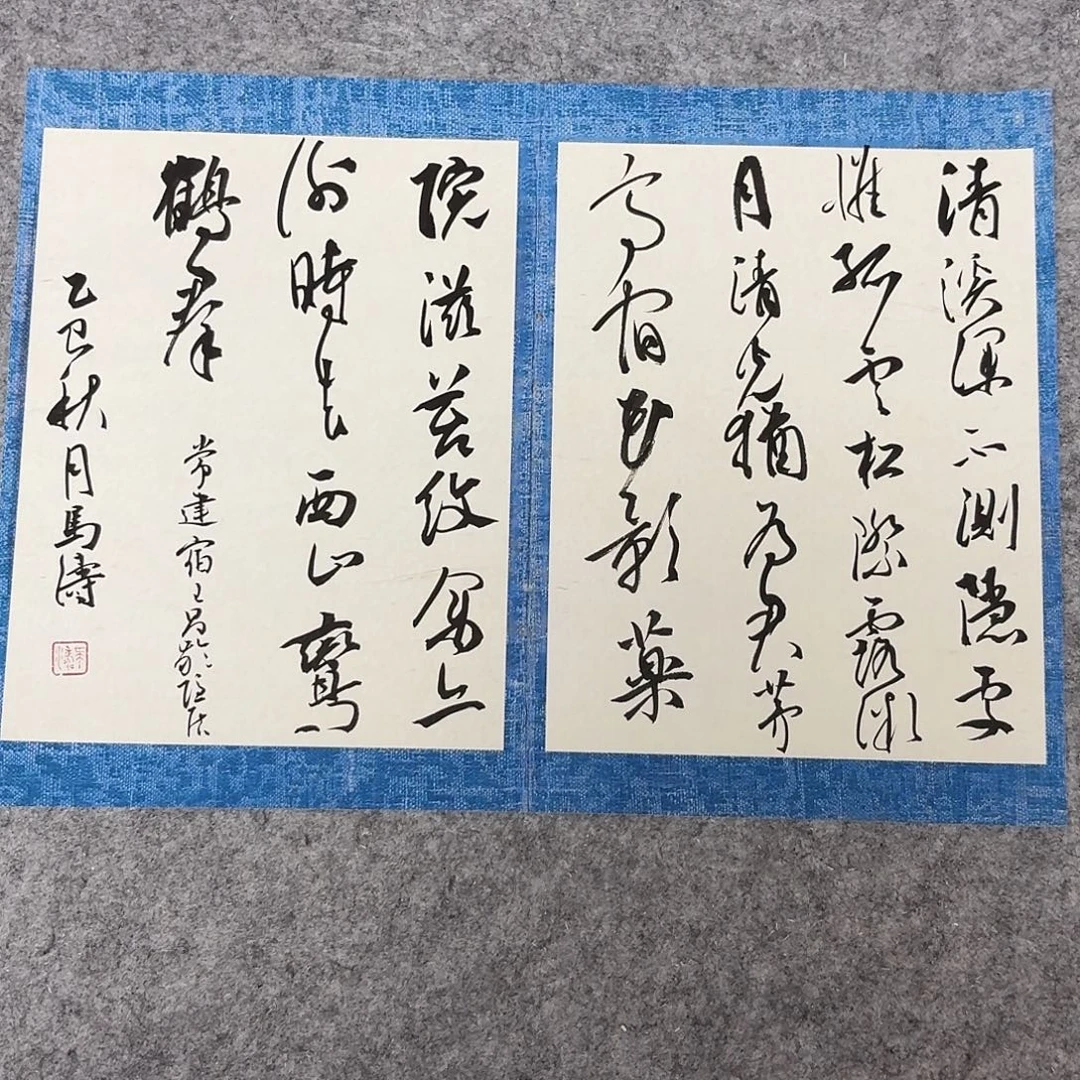 清溪深不測隱處
惟孤雲松際露微
月清光猶為君茅
亭宿花影藥
院滋苔紋余亦
謝時去西山鸞
鶴羣
常建宿王昌齡隱居
乙巳秋月馬濤